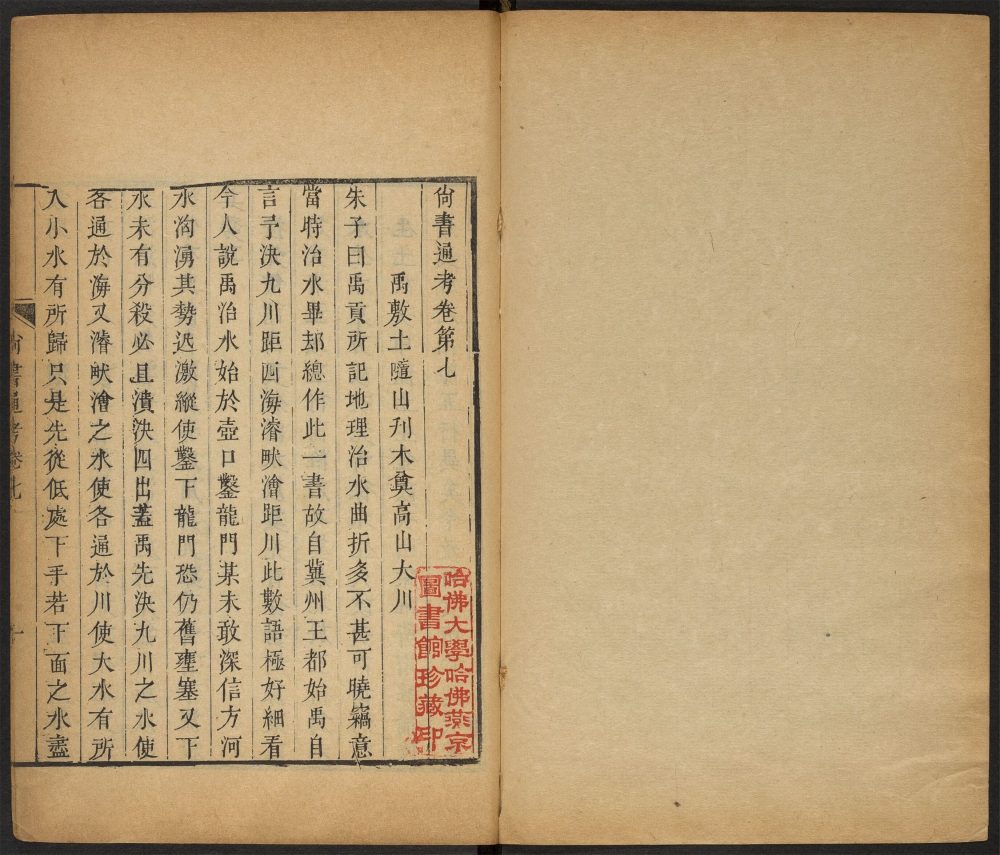 尙書通考卷第七
禹敷土隨山刋木奠高山大川
朱子曰禹貢所記地理治水曲折多不甚可曉竊意
當時治水畢却總作此一書故自冀州王都始禹自
言予決九川距四海濬畎澮距川此數語極好細看
今人說禹治水始於壺口鑿龍門某未敢深信方河
水洶湧其勢迅激縱使鑿下龍門恐仍舊壅塞又下
水未有分殺必且潰決四出蓋禹先決九川之水使
各通於海又濬畎澮之水使各通於川使大水有所
入小水有所歸只是先從低處下手若下面之水盡
尙書通考卷七
一
哈佛大學哈佛燕京
圖書館珍藏印